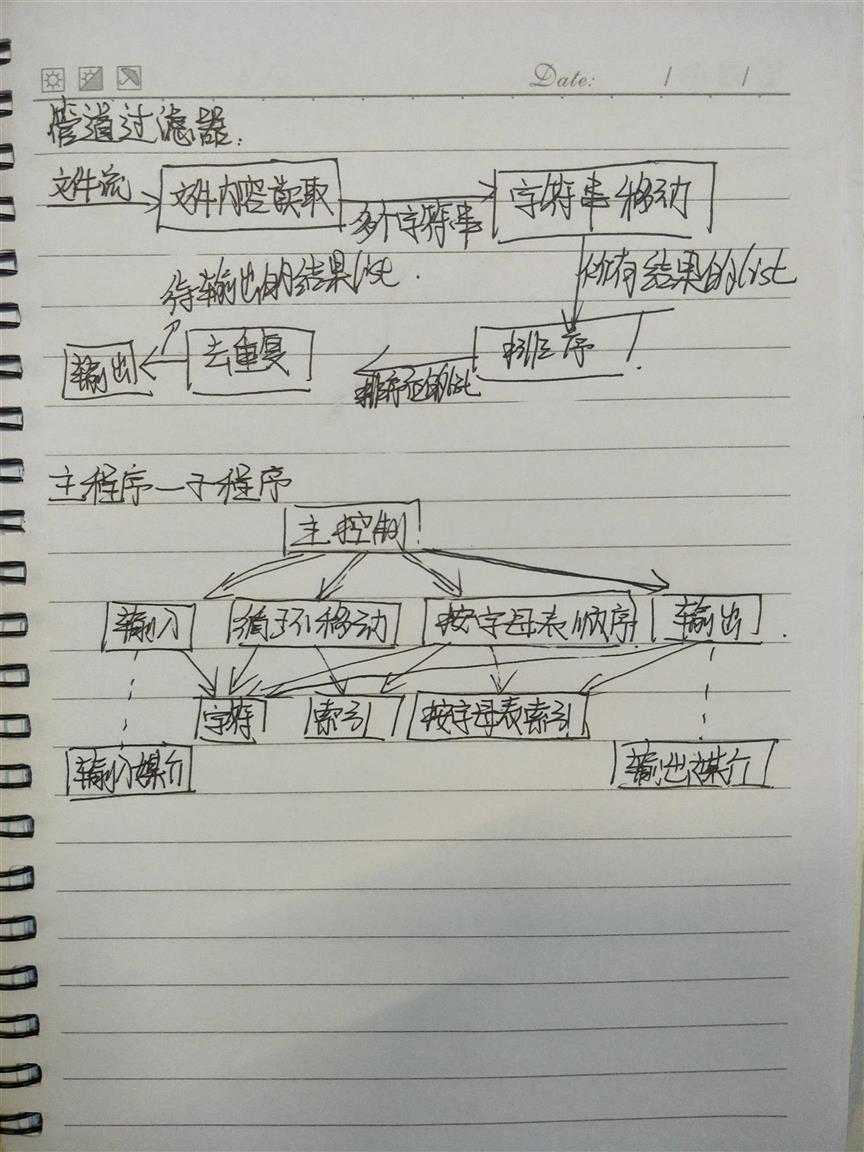 Date: / /
管道过滤器.
文件流 文件内容读取 多个字符串 字符串移动
待输出的结果list. 所有结果的list
输出 去重复 排好序的list 排序
主程序—子程序
主控制
输入 循环移动 按字母表顺序 输出
字符 索引 按字母表索引
输入媒介 输出媒介